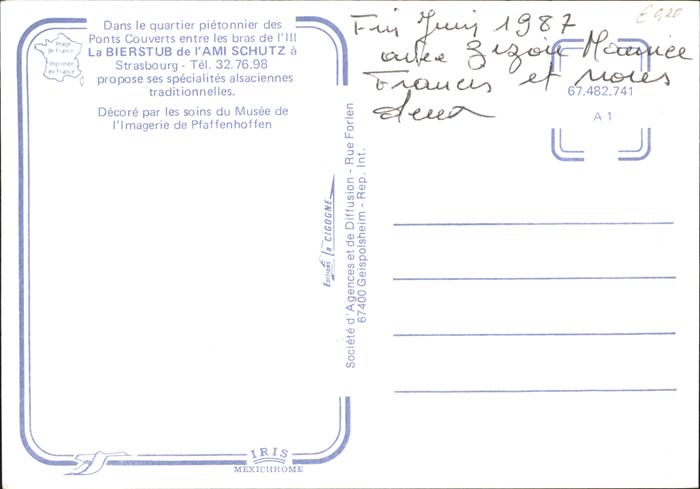 Dans le quartier piétonnier des
Ponts Couverts entre les bras de l'Ill
La BIERSTUB de l'AMI SCHUTZ à
Strasbourg - Tél. 32.76.98
propose ses spécialités alsaciennes
traditionnelles.
Décoré par les soins du Musée de
l'Imagerie de Pfaffenhoffen
Image
de France
Imprimée
en France
Fin Juin 1987
avec Zizou Maurice
Francis et nous
deux
€ 0,20
67.482.741
A 1
EDITIONS la CIGOGNE
Société d'Agences et de Diffusion - Rue Forlen
67400 Geispolsheim - Rep. Int.
IRIS
MEXICHROME